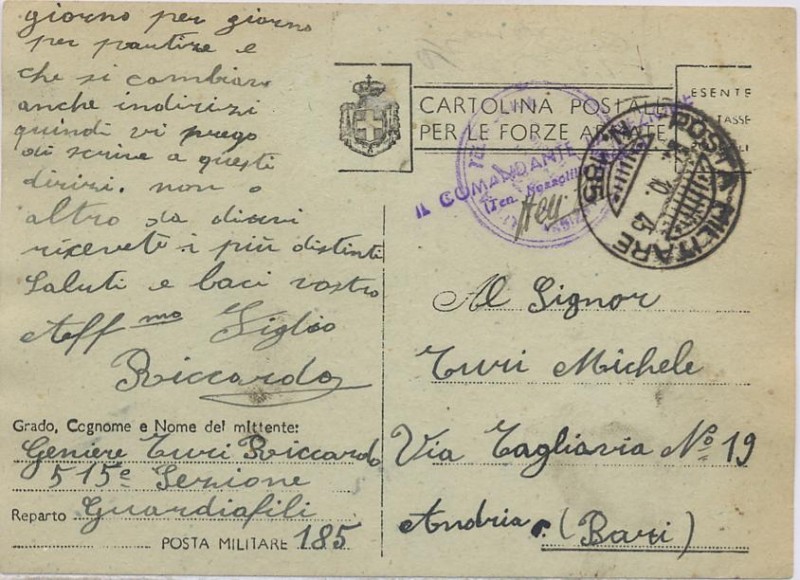 giorno per giorno
per partire e
che si cambiano
anche indirizi
quindi vi prego
di scrive a questi
dirizi. non o
altro da dirvi
ricevete i più distinti
Saluti e baci vostro
Aff mo Figlio
Riccardo
Grado, Cognome e Nome del mittente:
Geniere Turi Riccardo
515ª Sezione
Reparto Guardiafili
POSTA MILITARE 185
CARTOLINA POSTALE
PER LE FORZE ARMATE
ESENTE
TASSE
IL COMANDANTE SEZIONE
(Ten.
POSTA MILITARE
N. 185
Al Signor
Turi Michele
Via Tagliavia Nº 19
Andria (Bari)